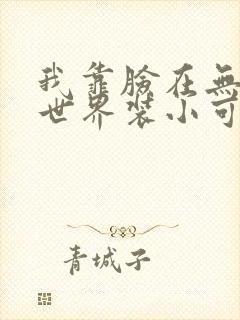 我靠臉在無
世界裝小可
青城子